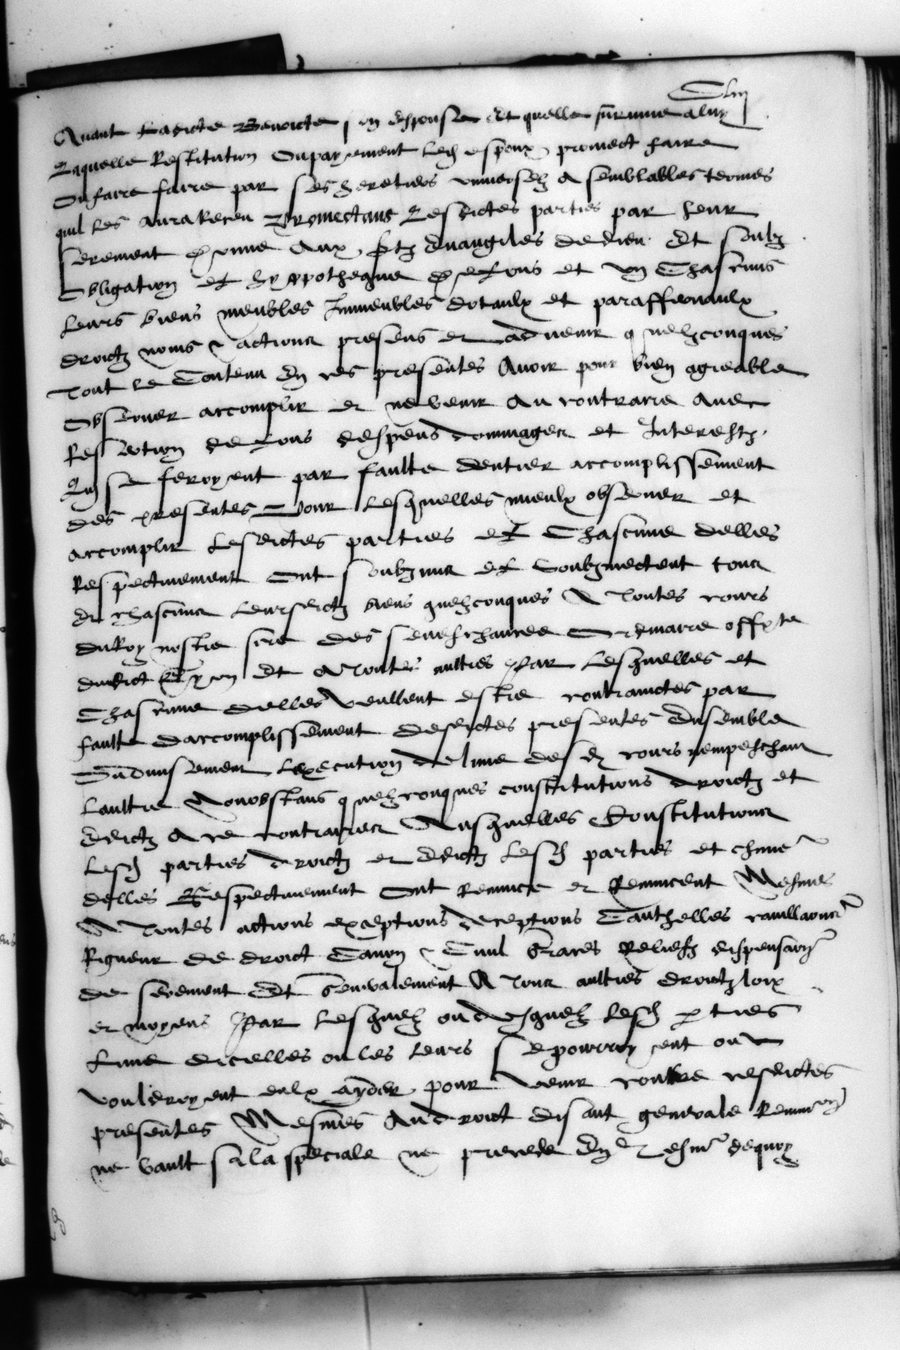 Quant ladicte Benoicte son espouse Et quelle survivie a luy
Laquelle Restitution ou payement led espoux promect faire
Ou faire faire par ses heretiers universelz A semblables termes
quil les aura Receu Promectans Lesdictes parties par leur
serement Aux stz Evangiles de dieu Et soubz
Obligation et hyppothecque de tous et ung Chascuns
leurs biens meubles Immeubles dotaulx et paraffernaulx
droictz noms & actions presens et advenir quelzconques
Tout le Contenu En ces presentes Avoir pour bien agreable
Observer accomplir et ne venir Au contraire Avec
Reffection de tous despens dommages et Interestz
Quil se feroyent par faulte dentier accomplissement
des presentes Pour lesquelles mieulx observer et
accomplir Lesdictes parties et Chascune delles
Respectivement Ont soubzmis et Soubzmectent tous
et chascuns leursdictz biens quelzconques A Toutes cours
du Roy nostre sire des seneschaucee Ordinaire
dudict Et A toutes aultres Par Lesquelles et
Chascune delles Veullent estre contrainctes par
faulte daccomplissement desdictes presentes Ensemble
Lexecution de lune desd cours nempeschant
Laultre Nonobstans quelzconques constitutions droictz et
Edictz A ce contraires Ausquelles Constitutions
Lesd parties droictz et Edictz Lesd parties et
delles Respectivement Ont Renunce et Renuncent Mesmes
A Toutes actions exceptions deceptions Cauthelles
Rigueur de droict Canon & Civil Graces Reliefz
de serement Et Generalement A Tous aultres droictz loix
et moyens Par Lesquelz ou desquelz Lesd parties
Lune dicelles ou les leurs se pourroyent ou
vouldroyent eulx ayder pour venir contre cesdictes
presentes Mesmes Au droict disant generale
ne vault si la speciale ne precede dequoy